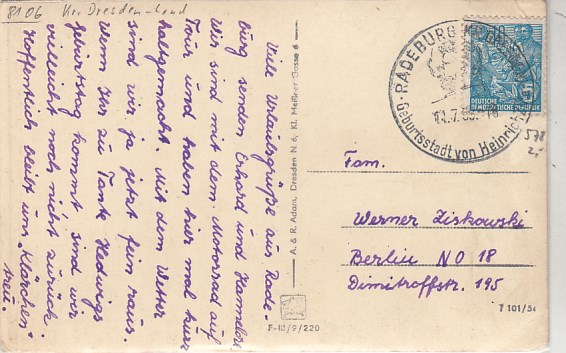 8106 Kr. Dresden-Land
Viele Urlaubsgrüße aus Rade-
burg senden Erhard und
Wir sind mit dem Motorrad auf
Tour und haben hier mal kurz
haltgemacht. Mit dem Wetter
sind wir ja jetzt fein raus.
Wenn Ihr zu Tante Hedwigs
Geburtstag kommt sind wir
vielleicht noch nicht zurück
Hoffentlich bleibt uns "Klärchen"
treu.
A. & R. Adam, Dresden N 6, Kl. Meißner Gasse 6
F-III/9/220
RADEBURG
Geburtsstadt von Heinrich
DEUTSCHE
DEMOKRATISCHE REPUBLIK
5
578
2,-
Fam.
Werner Ziskowski
Berlin NO 18
Dimitroffstr. 195
T 101/54